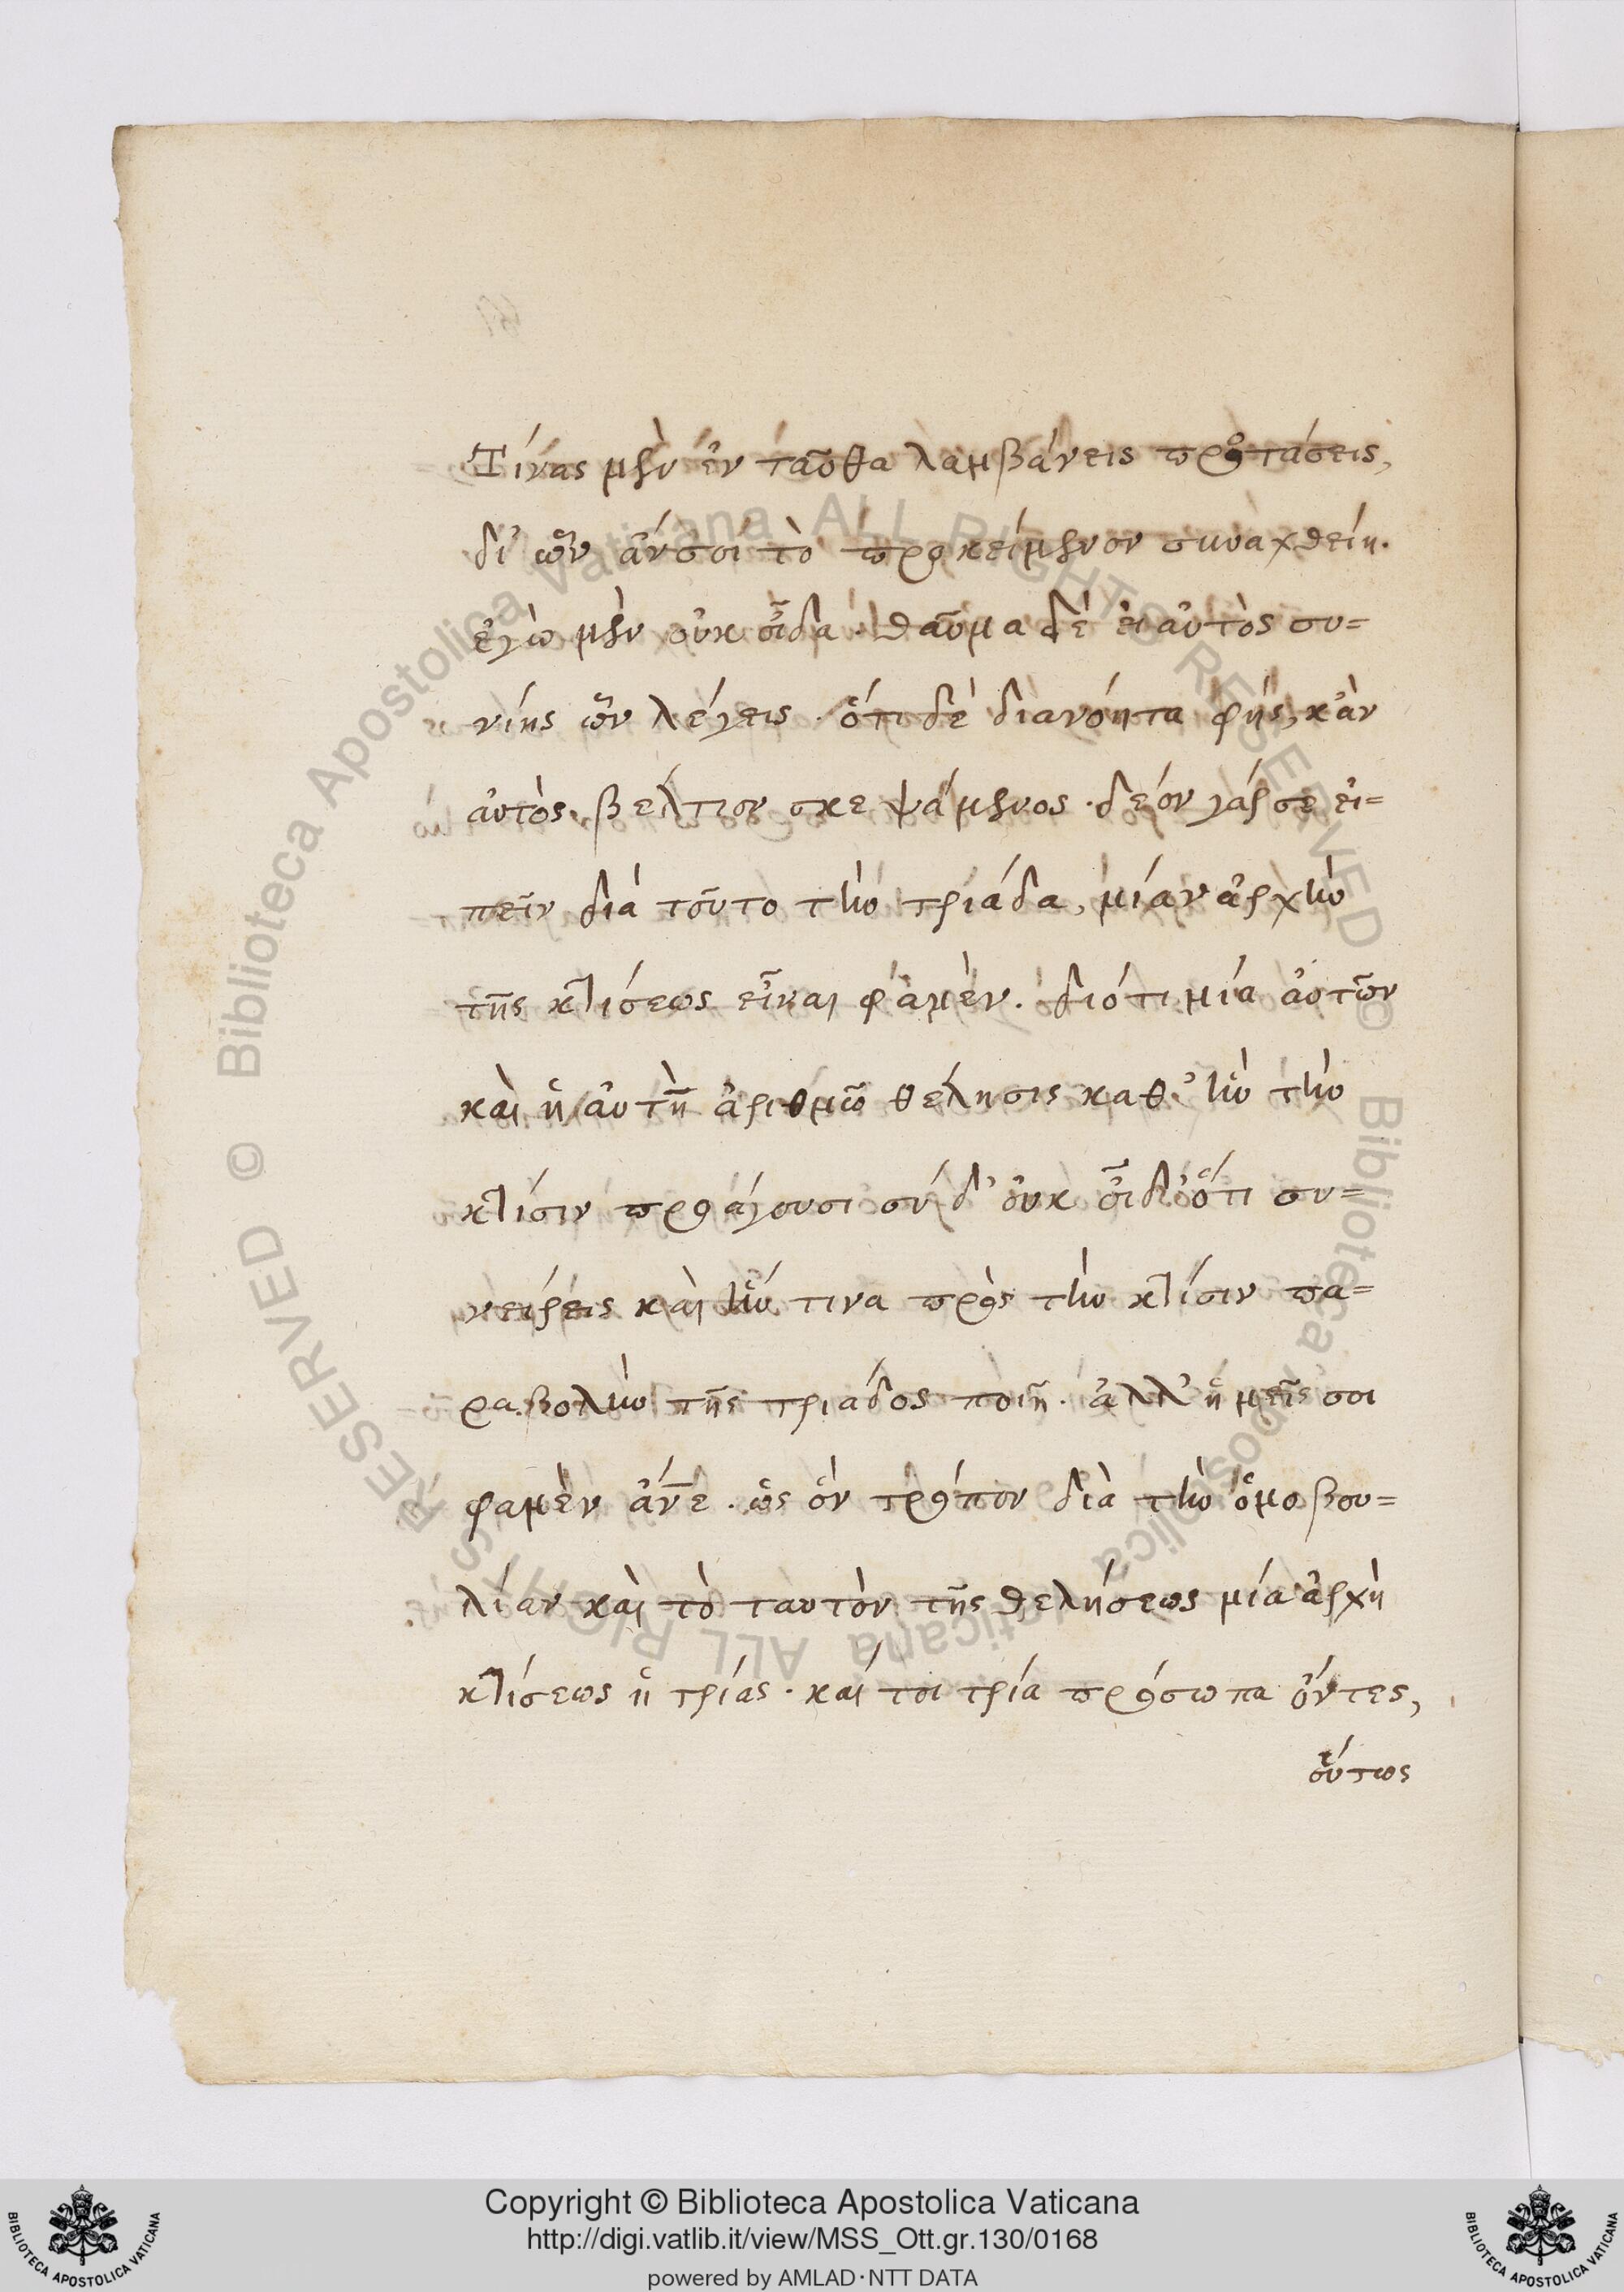 Τίνας μὲν ἐν ταῦθα λαμβάνεις προτάσεις,
δι' ὧν ἄν σοι τὸ προκείμενον συναχθείη.
ἐγὼ μὲν οὐκ οἶδα. θαῦμα δὲ εἰ αὐτὸς συ=
νίης ὧν λέγεις. ὅτι δὲ διανόητα φῄς, κἂν
αὐτὸς βέλτιον σκεψάμενος. δέον γάρ σε εἰ=
πεῖν διὰ τοῦτο τὴν τριάδα, μίαν ἀρχὴν
τῆς κτίσεως εἶναι φαμέν. διότι μία αὐτῶν
καὶ ἡ αὐτὴ ἀριθμῷ θέλησις καθ' ἣν τὴν
κτίσιν προάγουσι σύ δ' οὐκ οἶδ' ὅτι συ=
νείρεις καὶ ἥν τινα πρὸς τὴν κτίσιν πα=
ραβολὴν τῆς τριάδος ποιῇ. ἀλλ' ἡμεῖς σοι
φαμὲν ἄνε. ὡς ὃν τρόπον διὰ τὴν ὁμοβου=
λίαν καὶ τὸ ταυτὸν τῆς θελήσεως μία ἀρχὴ
κτίσεως ἡ τρίας. καί τοι τρία πρόσωπα ὄντες,
οὕτως
Copyright © Biblioteca Apostolica Vaticana
http://digi.vatlib.it/view/MSS_Ott.gr.130/0168
powered by AMLAD·NTT DATA
BIBLIOTECA APOSTOLICA VATICANA
BIBLIOTECA APOSTOLICA VATICANA
© Biblioteca Apostolica Vaticana ALL RIGHTS RESERVED
© Biblioteca Apostolica Vaticana ALL RIGHTS RESERVED